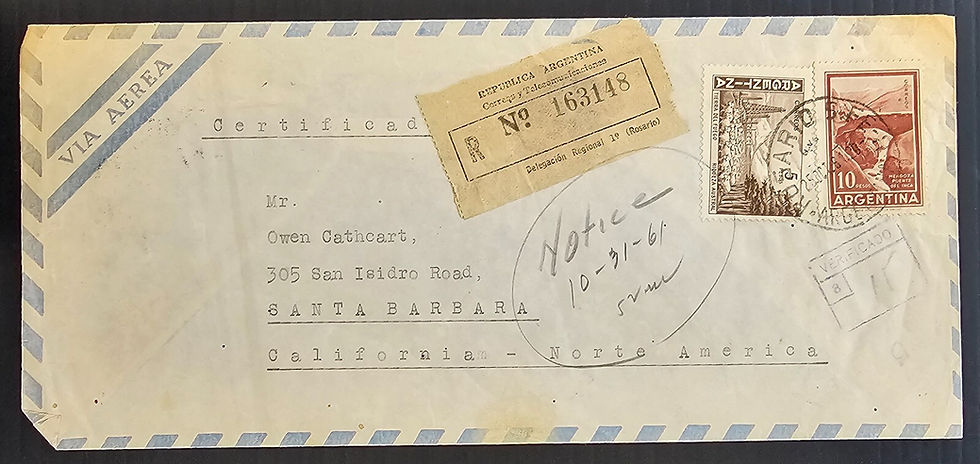 VIA AEREA
Certificad
REPUBLICA ARGENTINA
Correos y Telecomunicaciones
R Nº 163148
Delegación Regional 1º (Rosario)
ARGENTINA
TIERRA DEL FUEGO
RIQUEZA AUSTRAL
10
PESOS
MENDOZA
PUENTE
DEL INCA
ARGENTINA
ROSARIO
VERIFICADO
8
Mr.
Owen Cathcart,
305 San Isidro Road,
SANTA BARBARA
California - Norte America
Notice
10-31-61